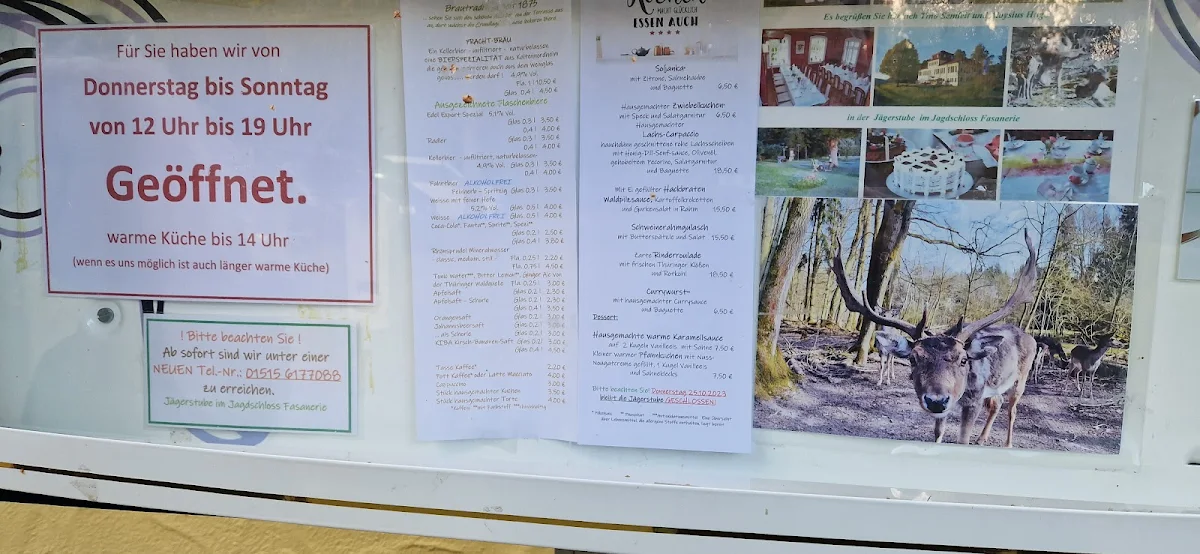 Für Sie haben wir von
Donnerstag bis Sonntag
von 12 Uhr bis 19 Uhr
Geöffnet.
warme Küche bis 14 Uhr
(wenn es uns möglich ist auch länger warme Küche)
! Bitte beachten Sie !
Ab sofort sind wir unter einer
NEUEN Tel.-Nr.: 01515 6177088
zu erreichen.
Jägerstube im Jagdschloss Fasanerie
PRACHT-BRÄU
Ein Kellerbier - unfiltriert - naturbelassen
eine BIERSPEZIALITÄT aus
4,9% Vol.
Fla. 1 l 10,50 €
Glas 0,4 l 4,50 €
Ausgezeichnete Flaschenbiere
Edel Export Spezial 5,1% Vol.
Glas 0,3 l 3,50 €
0,4 l 4,00 €
Radler Glas 0,3 l 3,50 €
0,4 l 4,00 €
Kellerbier - unfiltriert, naturbelassen-
4,9% Vol. Glas 0,3 l 3,50 €
0,4 l 4,00 €
ALKOHOLFREI
Glas 0,3 l 3,50 €
Weisse mit feiner Hefe
5,2% Vol. Glas 0,5 l 4,00 €
Weisse ALKOHOLFREI Glas 0,5 l 4,00 €
Coca-Cola*, Fanta*, Sprite*, Spezi**
Glas 0,2 l 2,50 €
Glas 0,4 l 3,80 €
Mineralwasser
classic, medium, still Fla. 0,25 l 2,20 €
Fla. 0,75 l 4,50 €
Tonic Water***, Bitter Lemon**, Ginger Ale
der Thüringer Waldquelle Fla. 0,25 l 3,00 €
Apfelsaft Glas 0,2 l 2,30 €
Apfelsaft - Schorle Glas 0,2 l 2,30 €
Orangensaft
Johannisbeersaft
...als Schorle
KIBA Kirsch-Bananen-Saft
Tasse Kaffee*
Pott Kaffee* oder Latte Macciato
Cappuccino
Stück hausgemachter Kuchen
Stück hausgemachter Torte
MACHT GLÜCKLICH
ESSEN AUCH
Soljanka
mit Zitrone, Sahnehaube
und Baguette 6,50 €
Hausgemachter Zwiebelkuchen
mit Speck und Salatgarnitur 6,50 €
Hausgemachter
Lachs-Carpaccio
hauchdünn geschnittene rohe Lachsscheiben
mit Honig-Dill-Senf-sauce, Olivenöl,
gehobelten Pecorino, Salatgarnitur
und Baguette 18,50 €
Mit Ei gefüllter Hackbraten
Waldpilzsauce, Kartoffelkroketten
und Gurkensalat in Rahm 15,50 €
Schweinerahmgulasch
mit Butterspätzle und Salat 15,50 €
Zarte Rinderroulade
mit frischen Thüringer Klößen
und Rotkohl 18,50 €
Currywurst
mit hausgemachter Currysauce
und Baguette 6,50 €
Dessert:
Hausgemachte warme Karamellsauce
auf 2 Kugeln Vanilleeis mit Sahne 7,50 €
Kleiner warmer Pfannkuchen mit Nuss-
Nougatcreme gefüllt, 1 Kugel Vanilleeis
und Sahneklecks 7,50 €
Bitte beachten Sie! Donnerstag 25.10.2023
bleibt die Jägerstube GESCHLOSSEN!
Es begrüßen Sie
in der Jägerstube im Jagdschloss Fasanerie